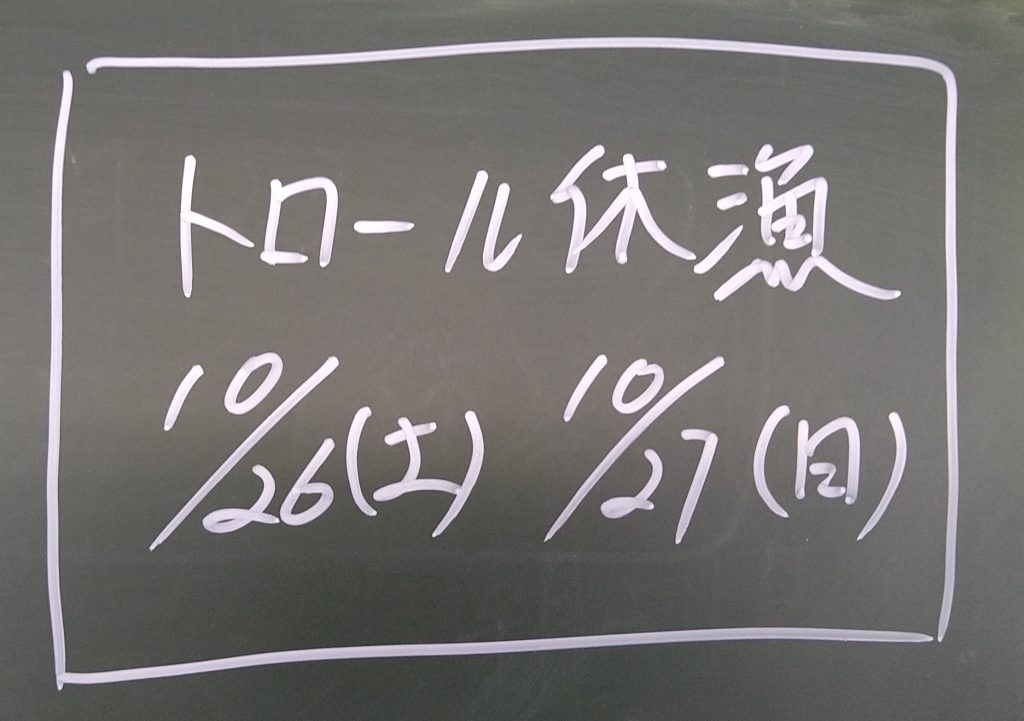 トロール休漁
10/26(土) 10/27(日)